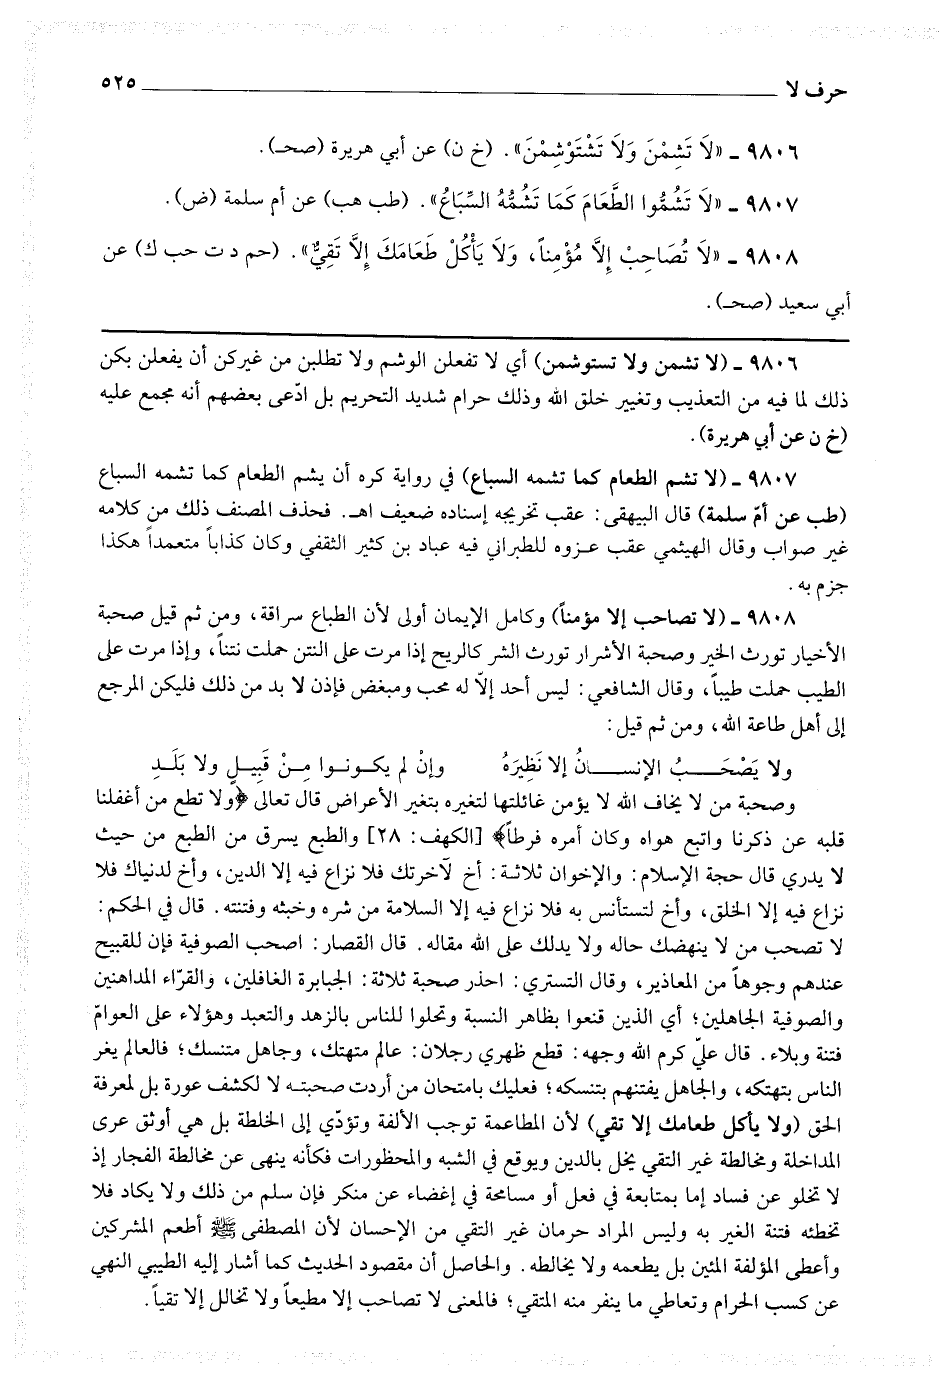 حرف لا ٥٢٥
٩٨٠٦ ـ «لَا تَشِمْنَ وَلَا تَشْتَوْشِمْنَ». (خ ن) عن أبي هريرة (صحـ).
٩٨٠٧ ـ «لَا تَشُمُّوا الطَّعَامَ كَمَا تَشُمُّهُ السِّبَاعُ». (طب هب) عن أم سلمة (ض).
٩٨٠٨ ـ «لَا تُصَاحِبْ إِلَّا مُؤْمِناً، وَلَا يَأْكُلْ طَعَامَكَ إِلَّا تَقِيٌّ». (حم د ت حب ك) عن
أبي سعيد (صحـ).
٩٨٠٦ ـ (لا تشمن ولا تستوشمن) أي لا تفعلن الوشم ولا تطلبن من غيركن أن يفعلن بكن
ذلك لما فيه من التعذيب وتغيير خلق الله وذلك حرام شديد التحريم بل ادّعى بعضهم أنه مجمع عليه
(خ ن عن أبي هريرة).
٩٨٠٧ ـ (لا تشم الطعام كما تشمه السباع) في رواية كره أن يشم الطعام كما تشمه السباع
(طب عن أمّ سلمة) قال البيهقي: عقب تخريجه إسناده ضعيف اهـ. فحذف المصنف ذلك من كلامه
غير صواب وقال الهيثمي عقب عزوه للطبراني فيه عباد بن كثير الثقفي وكان كذاباً متعمداً هكذا
جزم به.
٩٨٠٨ ـ (لا تصاحب إلا مؤمناً) وكامل الإيمان أولى لأن الطباع سراقة، ومن ثم قيل صحبة
الأخيار تورث الخير وصحبة الأشرار تورث الشر كالريح إذا مرت على النتن حملت نتناً، وإذا مرت على
الطيب حملت طيباً، وقال الشافعي: ليس أحد إلّا له محب ومبغض فإذن لا بد من ذلك فليكن المرجع
إلى أهل طاعة الله، ومن ثم قيل:
ولا يَصْحَـبُ الإنسـانُ إلا نَظِيرَهُ وإنْ لم يكـونـوا مِـنْ قَبِيـلٍ ولا بَلَـدِ
وصحبة من لا يخاف الله لا يؤمن غائلتها لتغيره بتغير الأعراض قال تعالى ﴿ولا تطع من أغفلنا
قلبه عن ذكرنا واتبع هواه وكان أمره فرطاً﴾ [الكهف: ٢٨] والطبع يسرق من الطبع من حيث
لا يدري قال حجة الإسلام: والإخوان ثلاثة: أخ لآخرتك فلا نزاع فيه إلا الدين، وأخ لدنياك فلا
نزاع فيه إلا الخلق، وأخ لتستأنس به فلا نزاع فيه إلا السلامة من شره وخبثه وفتنته. قال في الحكم:
لا تصحب من لا ينهضك حاله ولا يدلك على الله مقاله. قال القصار: اصحب الصوفية فإن للقبيح
عندهم وجوهاً من المعاذير، وقال التستري: احذر صحبة ثلاثة: الجبابرة الغافلين، والقرّاء المداهنين
والصوفية الجاهلين؛ أي الذين قنعوا بظاهر النسبة وتحلوا للناس بالزهد والتعبد وهؤلاء على العوامّ
فتنة وبلاء. قال عليّ كرم الله وجهه: قطع ظهري رجلان: عالم متهتك، وجاهل متنسك؛ فالعالم يغر
الناس بتهتكه، والجاهل يفتنهم بتنسكه؛ فعليك بامتحان من أردت صحبته لا لكشف عورة بل لمعرفة
الحق (ولا يأكل طعامك إلا تقي) لأن المطاعمة توجب الألفة وتؤدّي إلى الخلطة بل هي أوثق عرى
المداخلة ومخالطة غير التقي يخل بالدين ويوقع في الشبه والمحظورات فكأنه ينهى عن مخالطة الفجار إذ
لا تخلو عن فساد إما بمتابعة في فعل أو مسامحة في إغضاء عن منكر فإن سلم من ذلك ولا يكاد فلا
تخطئه فتنة الغير به وليس المراد حرمان غير التقي من الإحسان لأن المصطفى ﷺ أطعم المشركين
وأعطى المؤلفة المئين بل يطعمه ولا يخالطه. والحاصل أن مقصود الحديث كما أشار إليه الطيبي النهي
عن كسب الحرام وتعاطي ما ينفر منه المتقي؛ فالمعنى لا تصاحب إلا مطيعاً ولا تخالل إلا تقياً.